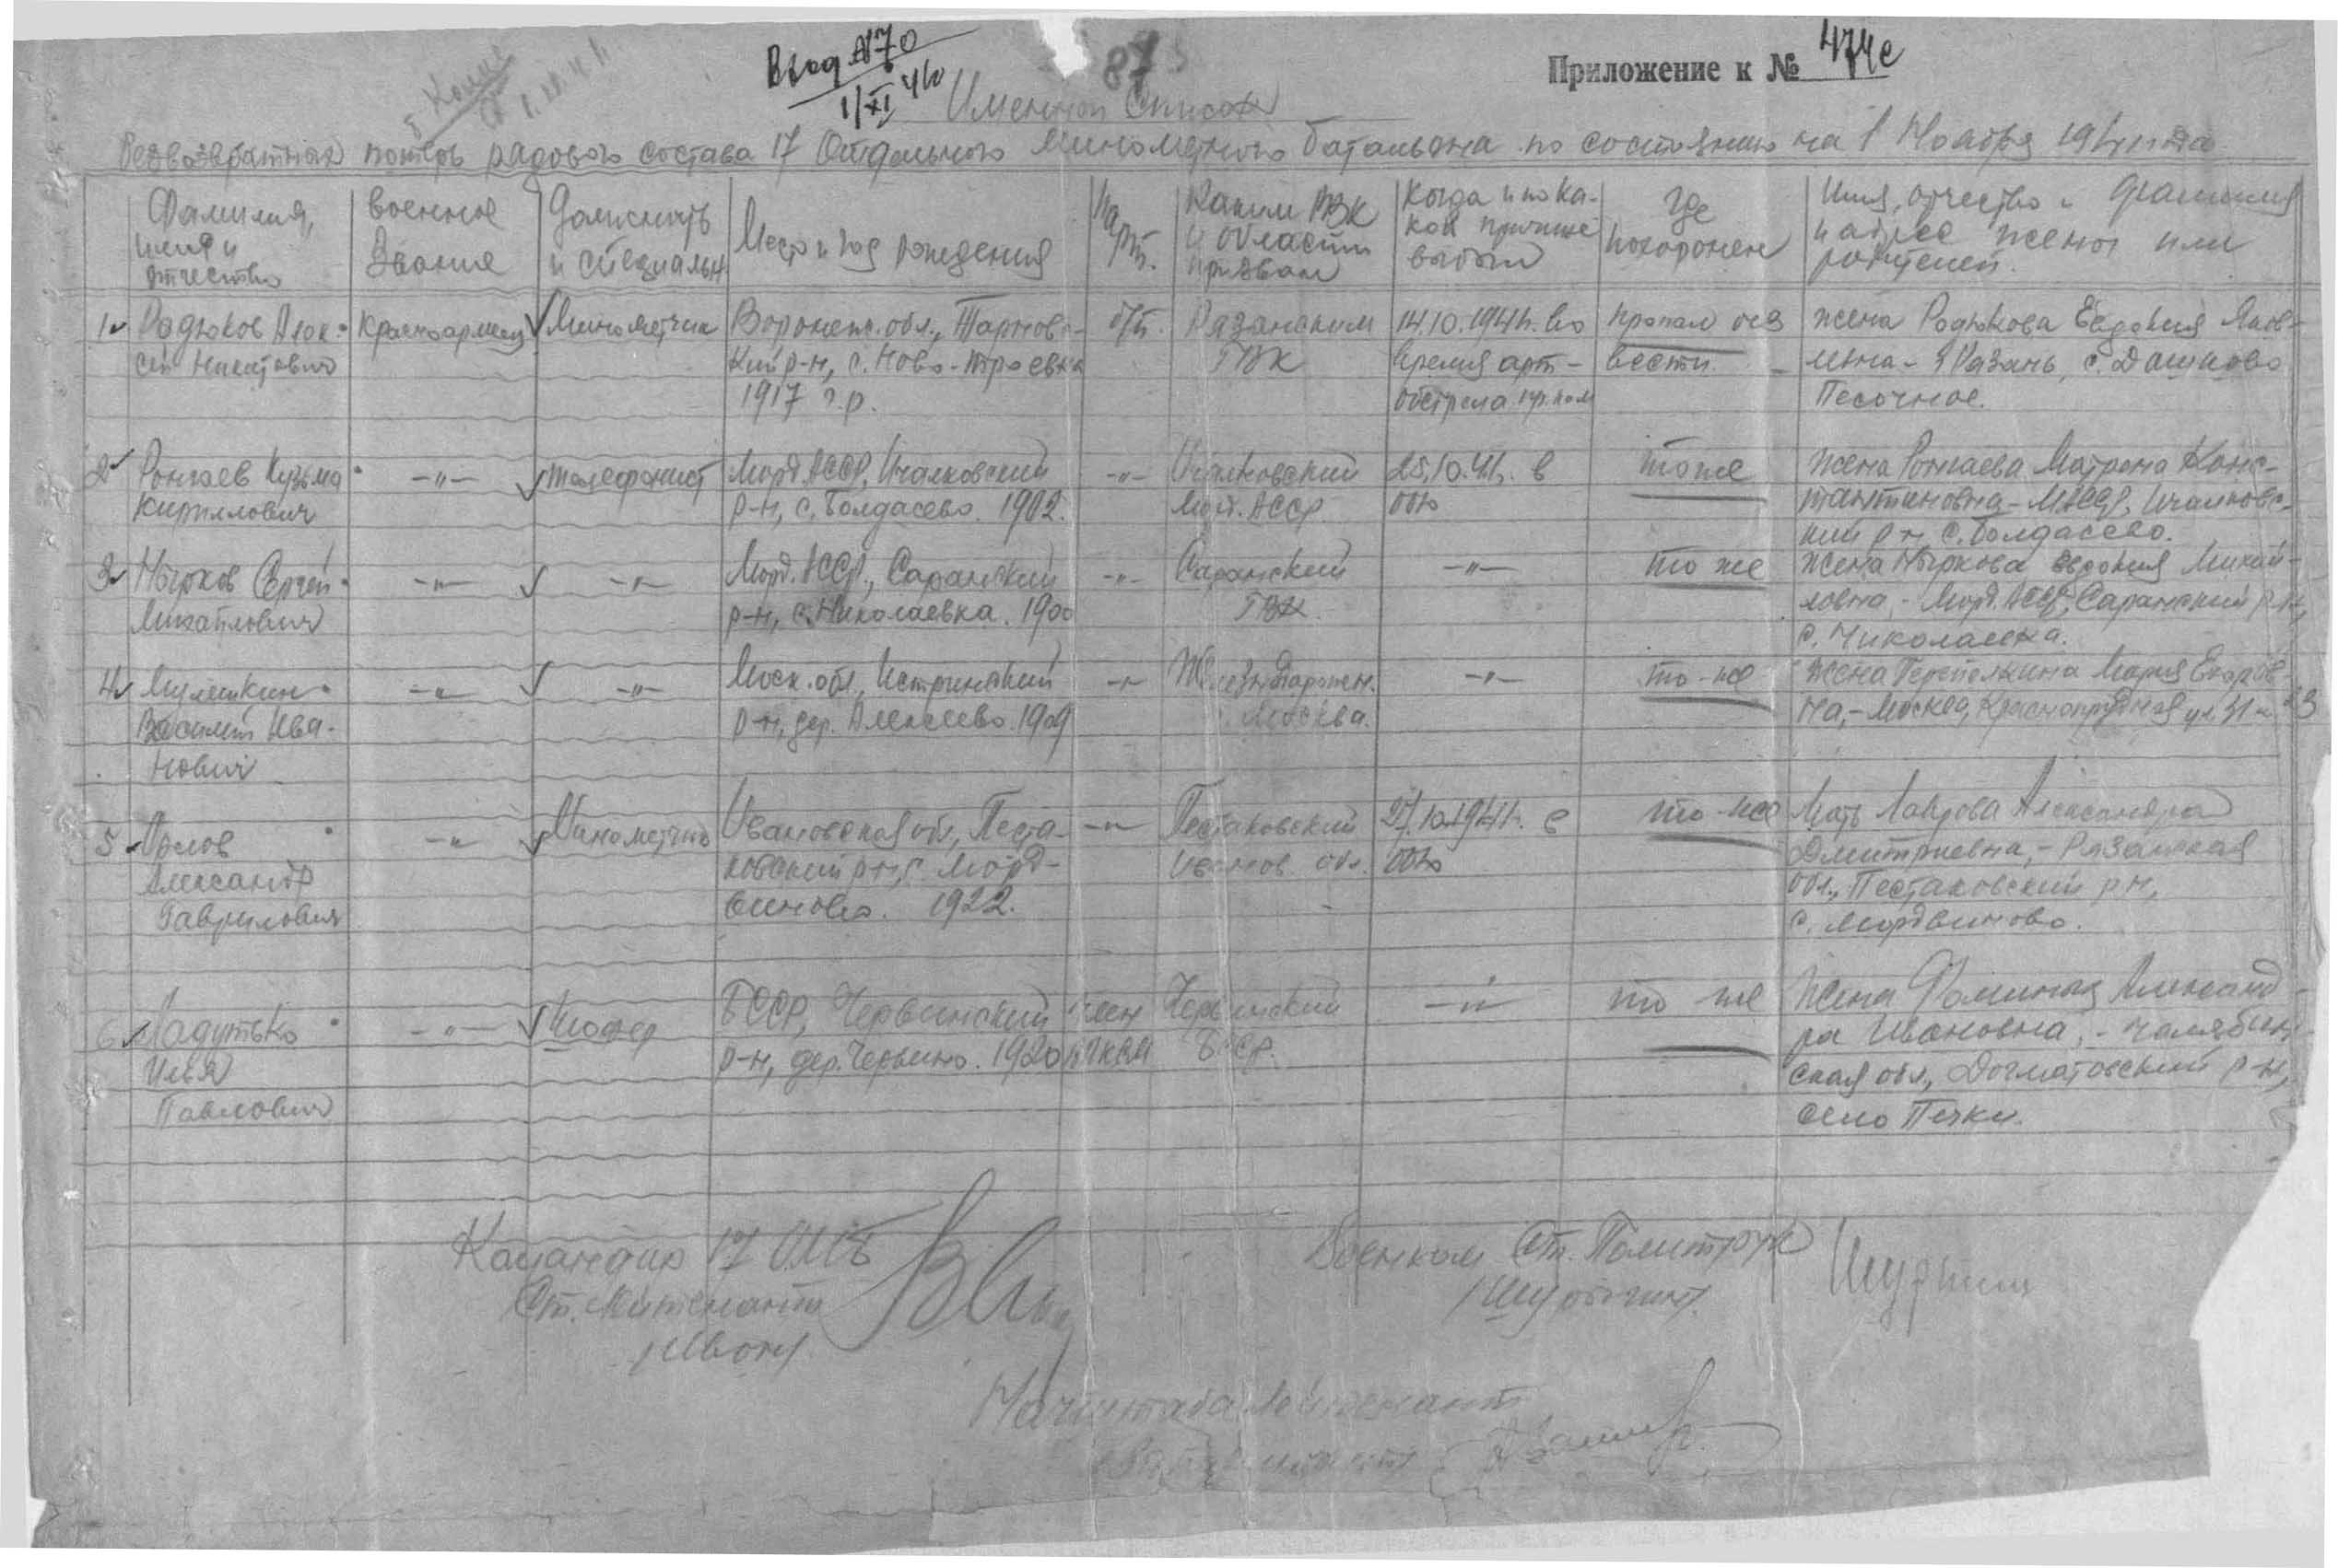 Вход №70
1/XI 41
87
Приложение к № 474с
Именной Список
безвозвратных потерь рядового состава 17 Отдельного Минометного батальона по состоянию на 1 Ноября 1941 года
Фамилия, имя и отчество
Военное Звание
Должность и специальн.
Место и год рождения
Парт.
Каким РВК и области призван
Когда и по какой причине выбыл
Где похоронен
Имя, отчество и фамилия и адрес жены или родителей.
1 Родюков Алексей Никитович
Красноармеец
Минометчик
Воронеж. обл., Тарновский р-н, с. Ново-Троевка 1917 г.р.
б/п.
Рязанским ГВК
14.10.1941г. во время арт-обстрела
пропал без вести
жена Родюкова Евдокия Яковлевна - г. Рязань, с. Дашково Песочное.
2 Ронгаев Кузьма Кириллович
-"-
телефонист
Морд. АССР, Ичалковский р-н, с. Болдасево. 1902.
-"-
Ичалковский Морд. АССР.
25.10.41г. в бою
то же
Жена Ронгаева Матрена Константиновна - МАССР, Ичалковский р-н, с. Болдасево.
3 Нырков Сергей Михайлович
-"-
-"-
Морд. АССР, Саранский р-н, с. Николаевка. 1900
-"-
Саранский ГВК.
-"-
то же
Жена Ныркова Евдокия Михайловна, - Морд. АССР, Саранский р-н, с. Николаевка.
4 Мулешкин Василий Иванович
-"-
-"-
Моск. обл., Истринский р-н, дер. Алексеево. 1909
-"-
Железнодорожн. г. Москва.
-"-
то-же
Жена Перепелкина Мария Егоровна, - Москва, Краснопрудная ул. 31 к. 23
5 Орлов Александр Гаврилович
-"-
Минометчик
Ивановская обл., Пестяковский р-н, с. Мордвиново. 1922.
-"-
Пестяковский Иванов. обл.
27.10.1941г. в бою
то-же
Мать Лаврова Александра Дмитриевна, - Рязанская обл., Пестяковский р-н, с. Мордвиново.
6 Ладутько Илья Павлович
-"-
Шофер
БССР, Червинский р-н, дер. Червино. 1920
член ВЛКСМ
Червинский БССР.
-"-
то же
Жена Фоминых Александра Ивановна, - Челябинская обл., Долматовский р-н, село Печки.
Командир 17 ОМБ
Ст. Лейтенант
Военком Ст. Политрук
Начштаба Лейтенант